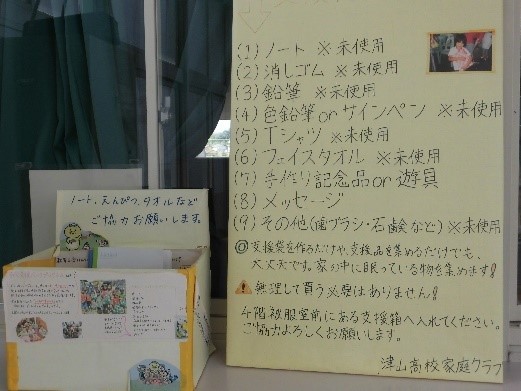 (1) ノート ※未使用
(2) 消しゴム ※未使用
(3) 鉛筆 ※未使用
(4) 色鉛筆orサインペン ※未使用
(5) Tシャツ ※未使用
(6) フェイスタオル ※未使用
(7) 手作り記念品or遊具
(8) メッセージ
(9) その他(歯ブラシ・石鹸など)※未使用
◎支援袋を作るだけや、支援品を集めるだけでも、
大丈夫です。家の中に眠っている物を集めます!
無理して買う必要はありません!
4階被服室前にある支援箱へ入れてください。
ご協力よろしくお願いします。
津山高校家庭クラブ
ノート、えんぴつ、タオルなど
ご協力お願いします。